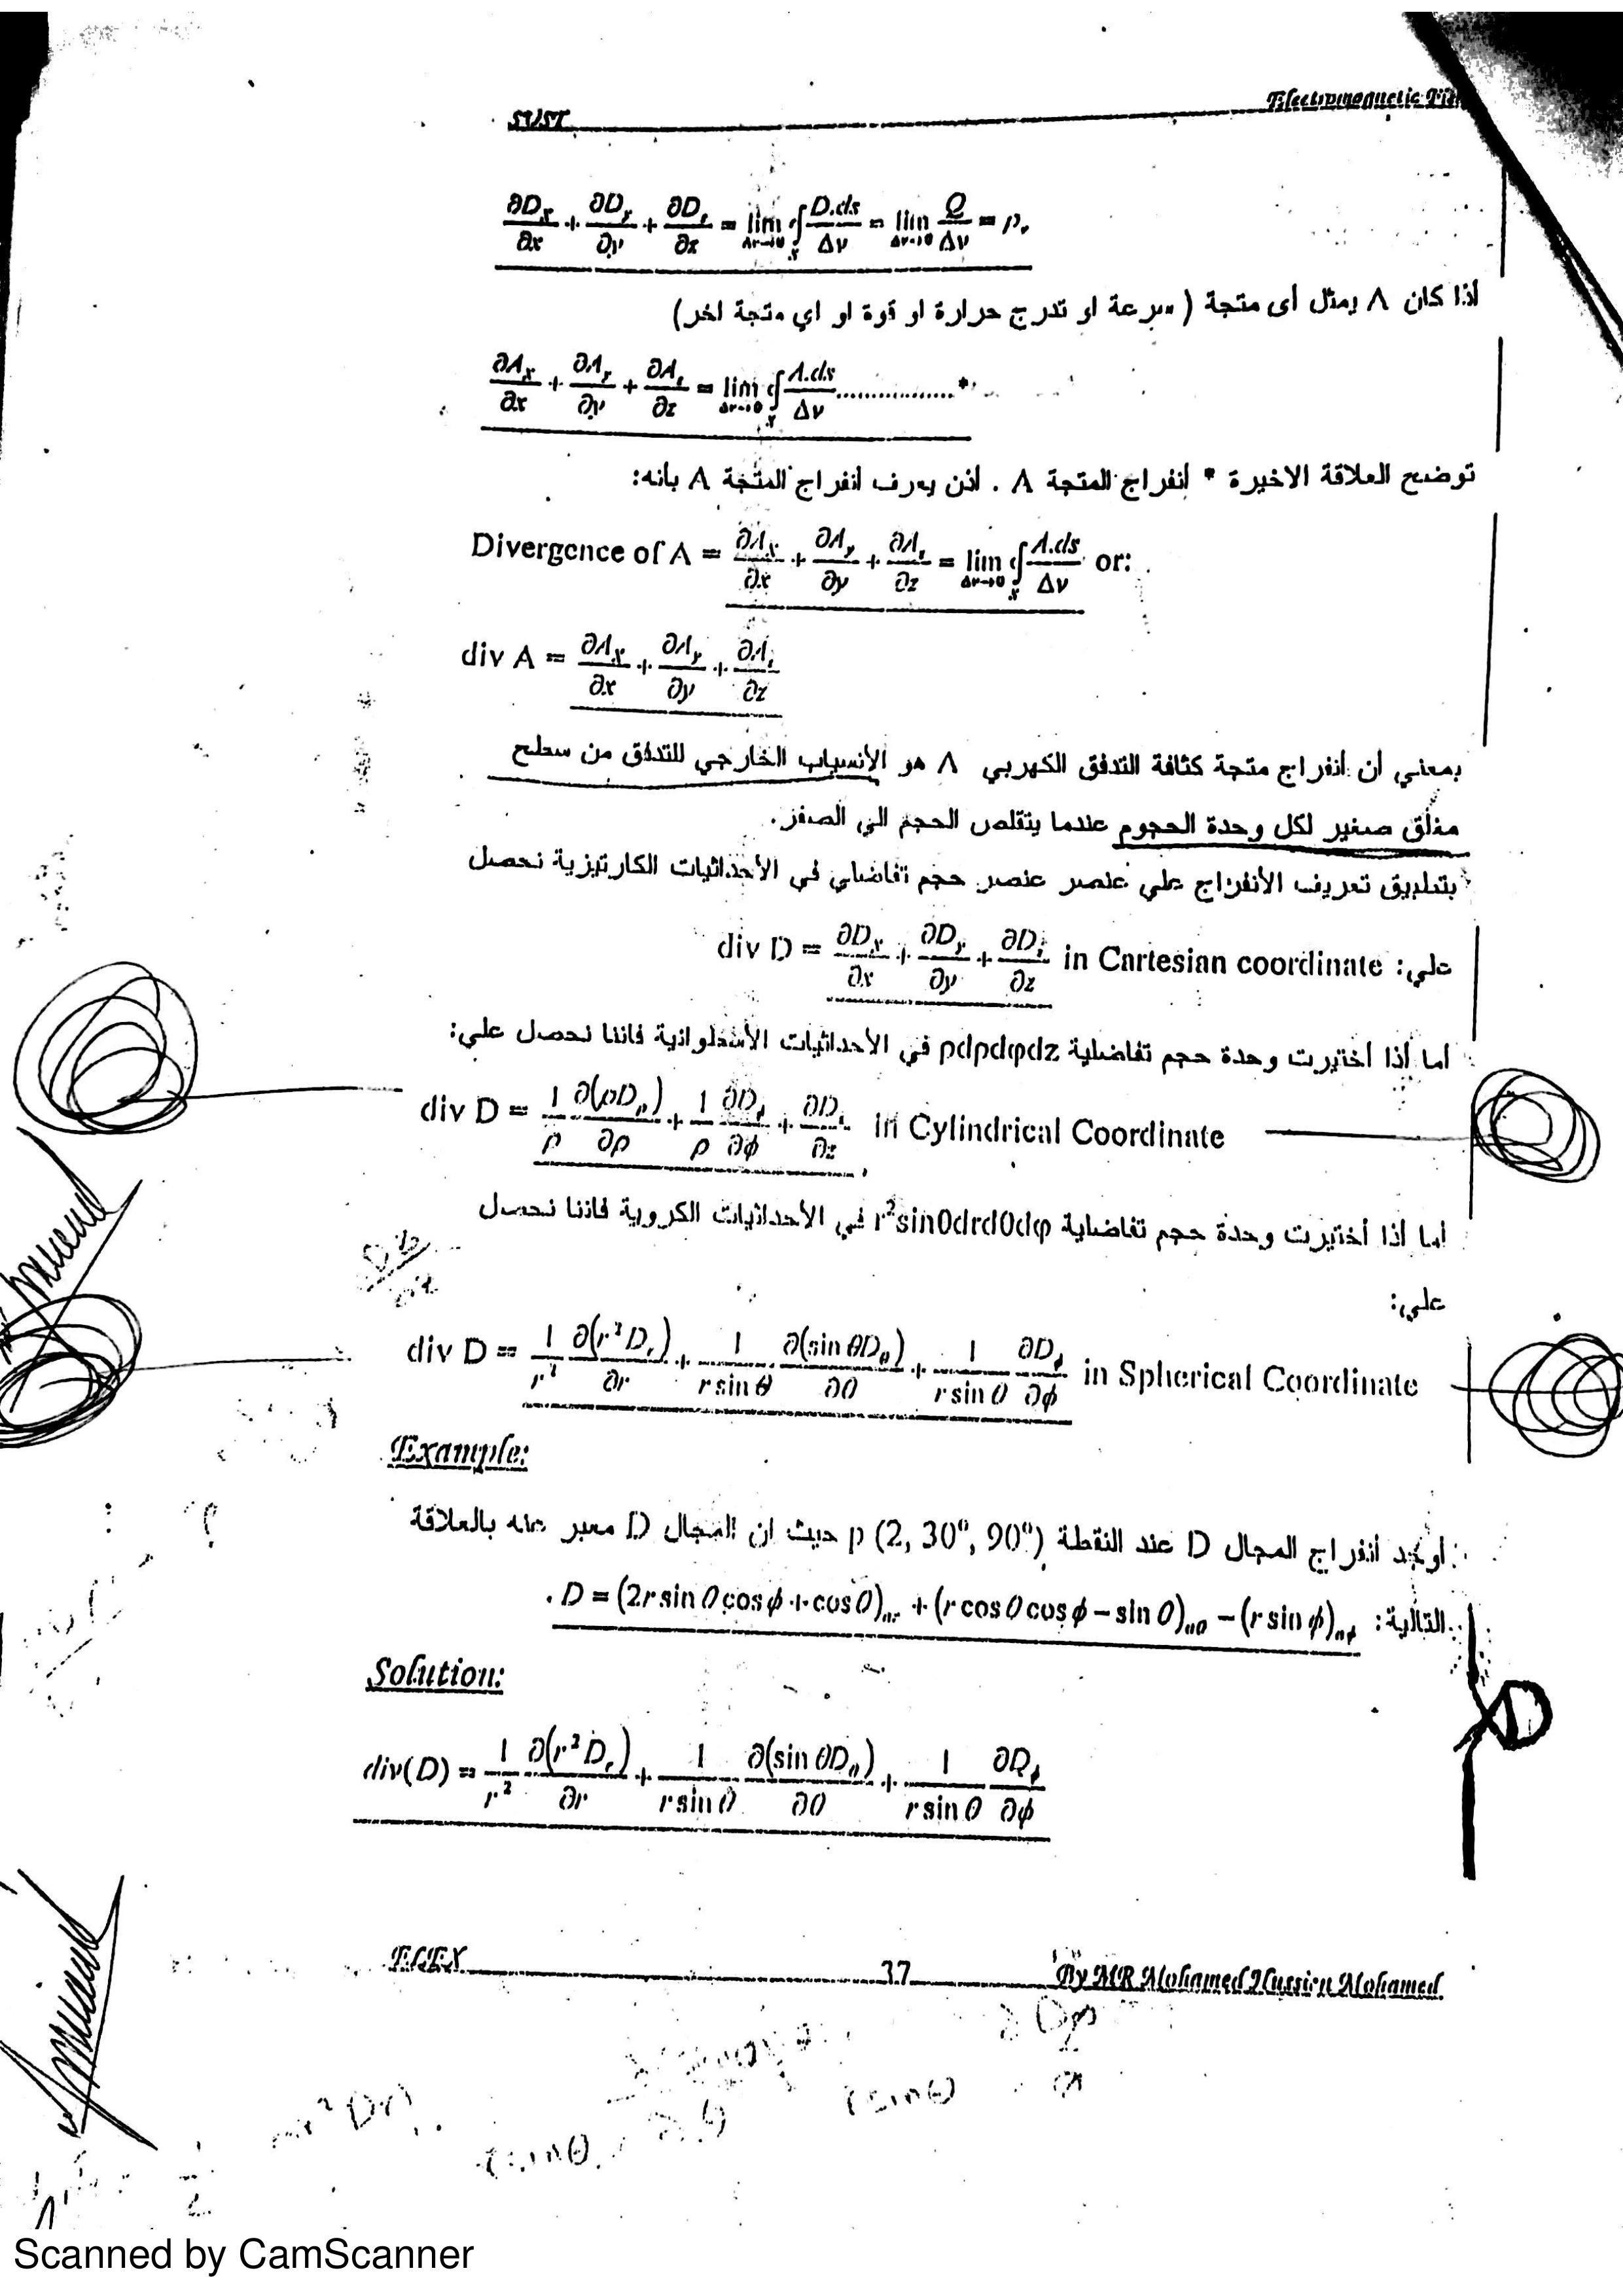 SUST
Electromagnetic
∂Dx/∂x + ∂Dy/∂y + ∂Dz/∂z = lim Δv→0 ∮s D.ds/Δv = lim Δv→0 Q/Δv = ρv
أذا كان A يمثل أى متجة ( سرعة او تدرج حرارة او قوة او اي متجة اخر)
∂Ax/∂x + ∂Ay/∂y + ∂Az/∂z = lim Δv→0 ∮s A.ds/Δv ................*
توضح العلاقة الاخيرة * أنفراج المتجة A . اذن يعرف انفراج المتجة A بانه:
Divergence of A = ∂Ax/∂x + ∂Ay/∂y + ∂Az/∂z = lim Δv→0 ∮s A.ds/Δv or:
div A = ∂Ax/∂x + ∂Ay/∂y + ∂Az/∂z
بمعني أن أنفراج متجة كثافة التدفق الكهربي A هو الأنسياب الخارجي للتدفق من سطح
مغلق صغير لكل وحدة الحجوم عندما يتقلص الحجم الي الصفر.
بتطبيق تعريف الأنفراج علي عنصر عنصر حجم تفاضلي في الأحداثيات الكارتيزية نحصل
علي: div D = ∂Dx/∂x + ∂Dy/∂y + ∂Dz/∂z in Cartesian coordinate
أما أذا أختيرت وحدة حجم تفاضلية ρdρdφdz في الأحداثيات الأسطوانية فاننا نحصل علي:
div D = 1/ρ ∂(ρDρ)/∂ρ + 1/ρ ∂Dφ/∂ϕ + ∂Dz/∂z in Cylindrical Coordinate
اما أذا أختيرت وحدة حجم تفاضلية r²sinθdrdθdφ في الأحداثيات الكروية فاننا نحصل
علي:
div D = 1/r² ∂(r²Dr)/∂r + 1/(r sin θ) ∂(sin θDθ)/∂θ + 1/(r sin θ) ∂Dφ/∂ϕ in Spherical Coordinate
Example:
أوجد أنفراج المجال D عند النقطة p (2, 30º, 90º) حيث ان المجال D معبر عنه بالعلاقة
التالية: D = (2r sin θ cos ϕ + cos θ)ar + (r cos θ cos ϕ − sin θ)aθ − (r sin ϕ)aϕ .
Solution:
div(D) = 1/r² ∂(r²Dr)/∂r + 1/(r sin θ) ∂(sin θDθ)/∂θ + 1/(r sin θ) ∂Dφ/∂ϕ
ELEX 37 By MR Mohamed Hussien Mohamed
Scanned by CamScanner